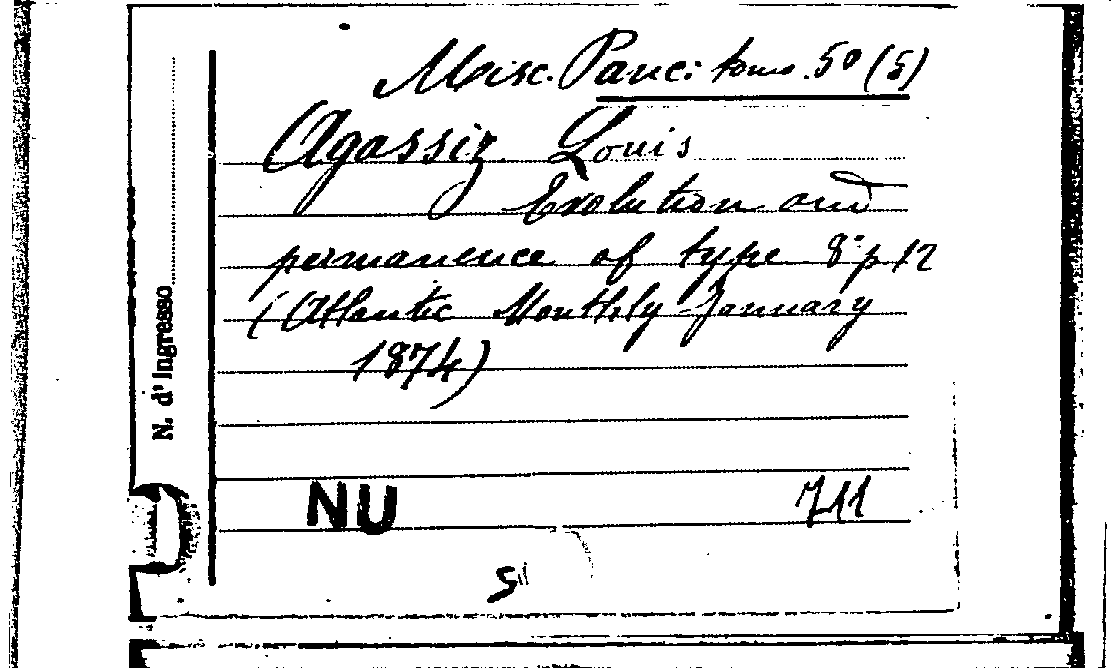 Misc. Panc: tomo. 50 (5)
Agassiz Louis
Evolution and
permanence of type 8° p 12
(Atlantic Monthly January
1874)
N. d'Ingresso
NU 711
5